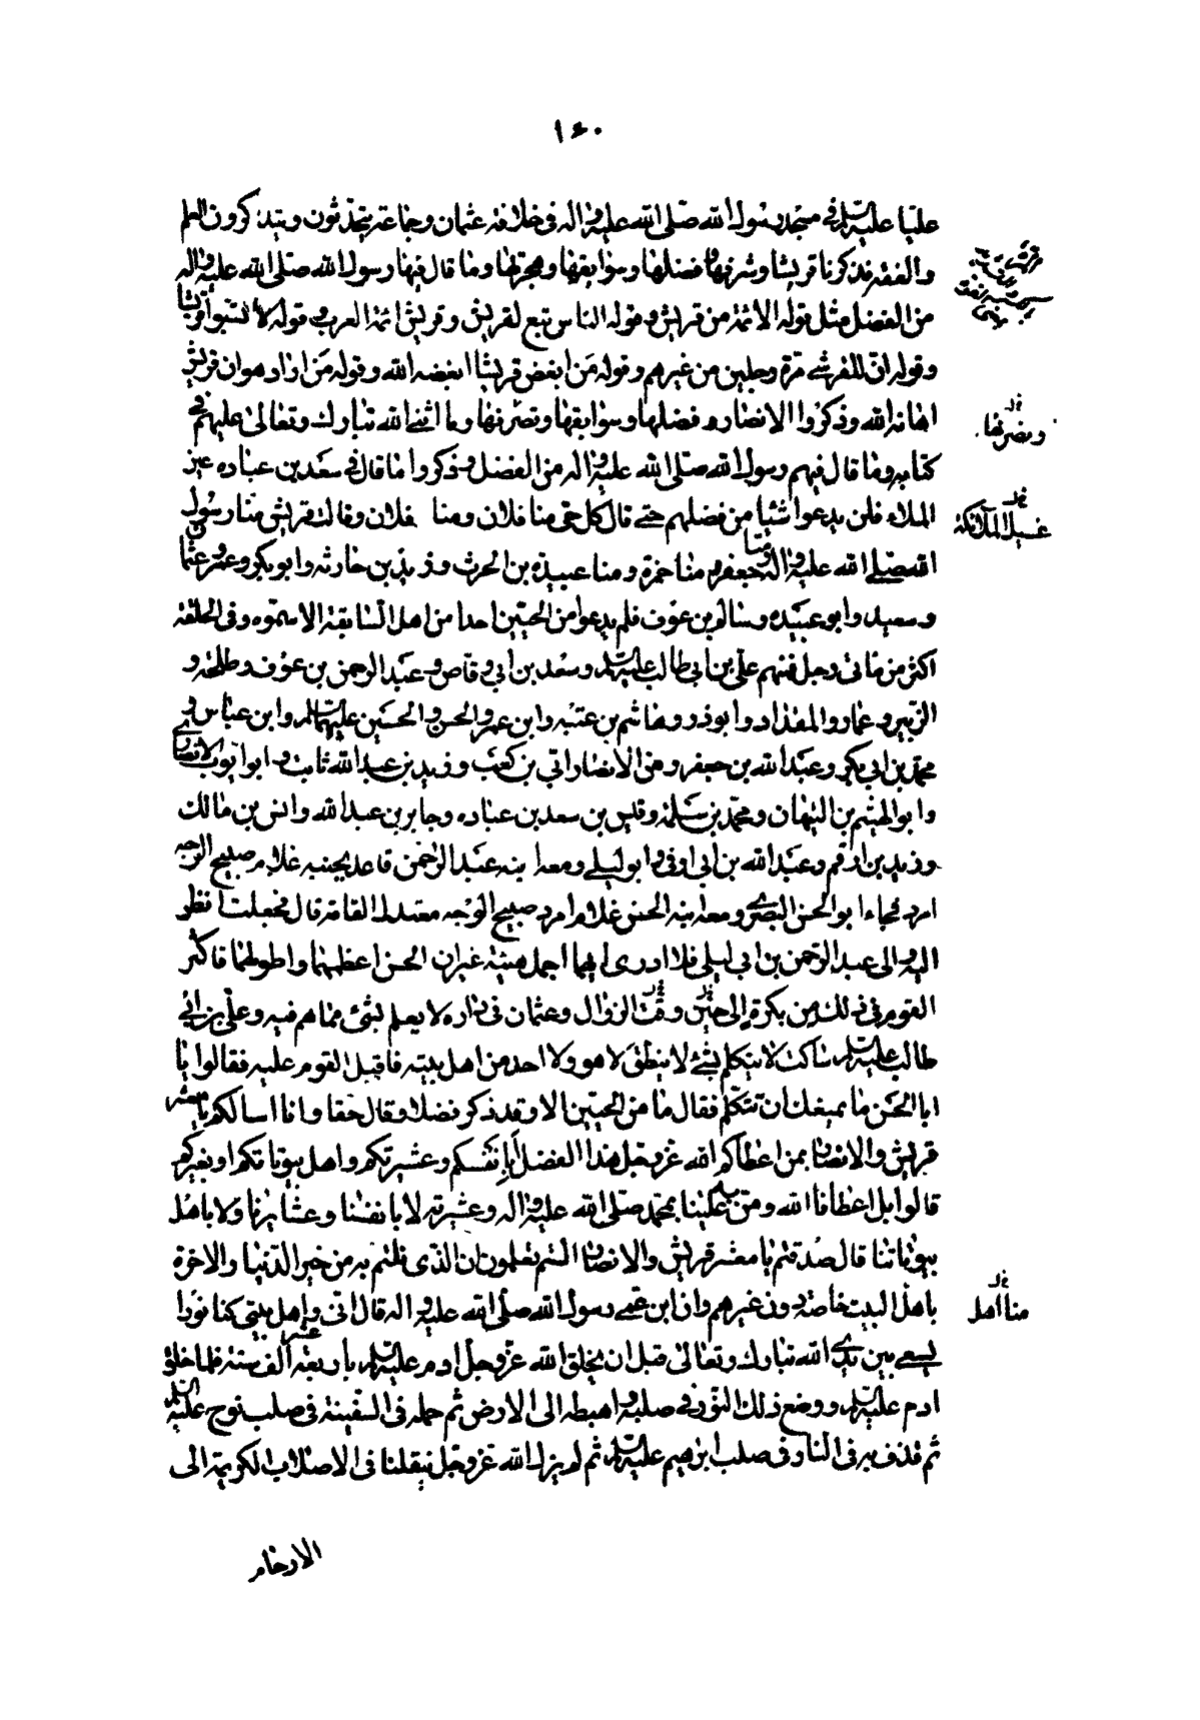 ١٤٠
عليا عليه السلام في مسجد رسول الله صلى الله عليه واله في خلافة عثمان وجماعة يتحدثون ويتذاكرون العلم
والفقه فذكرنا قريشا وشرفها وفضلها وسوابقها وهجرتها وما قال فيها رسول الله صلى الله عليه واله
من الفضل مثل قوله الائمة من قريش وقوله الناس تبع لقريش وقريش ائمة العرب وقوله لا تسبوا قريشا
وقوله ان للقرشي قوة رجلين من غيرهم وقوله من ابغض قريشا ابغضه الله وقوله من اراد هوان قريش
اهانه الله وذكروا الانصار وفضلها وسوابقها ونصرتها وما اثنى الله تبارك وتعالى عليهم في
ونصرتها
كتابه وما قال فيهم رسول الله صلى الله عليه واله من الفضل وذكروا ما قال في سعد بن عباده
الملاء فلن يدعوا شيئا من فضلهم حتى قال كل حي منا فلان ومنا فلان وقالت قريش منا رسول
غسيل الملائكة
الله صلى الله عليه واله ومنا جعفر ومنا حمزة ومنا عبيدة بن الحرث وزيد بن حارثه وابو بكر وعمر وعثمان
وسعيد وابو عبيده وسالم بن عوف فلم يدعوا من الحيين احدا من اهل السابقة الا سموه وفي الحلقة
اكثر من مائتي رجل فمنهم علي بن ابي طالب عليه السلام وسعد بن ابي وقاص وعبد الرحمن بن عوف وطلحة و
الزبير وعمار والمقداد وابو ذر وهاشم بن عتبه وابن عمر والحسن والحسين عليهما السلام وابن عباس و
محمد بن ابي بكر وعبد الله بن جعفر ومن الانصار ابي بن كعب وزيد بن عبد الله ثابت وابو ايوب الانصاري
وابو الهيثم بن التيهان ومحمد بن سلمة وقيس بن سعد بن عباده وجابر بن عبد الله وانس بن مالك
وزيد بن ارقم وعبد الله بن ابي اوفى وابو ليلى ومعه ابنه عبد الرحمن قاعد بجنبه غلام صبيح الوجه
امرد فجاء ابو الحسن البصري ومعه ابنه الحسن غلام امرد صبيح الوجه معتدل القامة قال فجعلت انظر
اليه والى عبد الرحمن بن ابي ليلى فلا ادرى ايهما اجمل هيئة غير ان الحسن اعظمهما واطولهما فاكثر
القوم في ذلك من بكرة الى حين وقت الزوال وعثمان في داره لا يعلم بشئ مما هم فيه وعلي بن ابي
طالب عليه السلام ساكت لا يتكلم بشئ لا ينطق لا هو ولا احد من اهل بيته فاقبل القوم عليه فقالوا يا
ابا الحسن ما يمنعك ان تتكلم فقال ما من الحيين الا وقد ذكر فضلا وقال حقا وانا اسالكم يا معشر
قريش والانصار بمن اعطاكم الله عز وجل هذا الفضل أبانفسكم وعشيرتكم واهل بيوتاتكم او بغيركم
قالوا بل اعطانا الله ومن به علينا بمحمد صلى الله عليه واله وعشيرته لا بانفسنا وعشائرنا ولا باهل
بيوتاتنا قال صدقتم يا معشر قريش والانصار الستم تعلمون ان الذى نلتم به من خير الدنيا والاخرة
باهل البيت خاصة دون غيرهم وان ابن عمي رسول الله صلى الله عليه واله قال انى واهل بيتي كنا نورا
منا اهل
يسعى بين يدي الله تبارك وتعالى قبل ان يخلق الله عز وجل ادم عليه السلام باربعة عشر ألف سنة فلما خلق
ادم عليه السلام ووضع ذلك النور في صلبه واهبطه الى الارض ثم حمله في السفينة في صلب نوح عليه السلام
ثم قذف به في النار في صلب ابرهيم عليه السلام ثم لم يزل الله عز وجل ينقلنا في الاصلاب الكريمة الى
الارحام